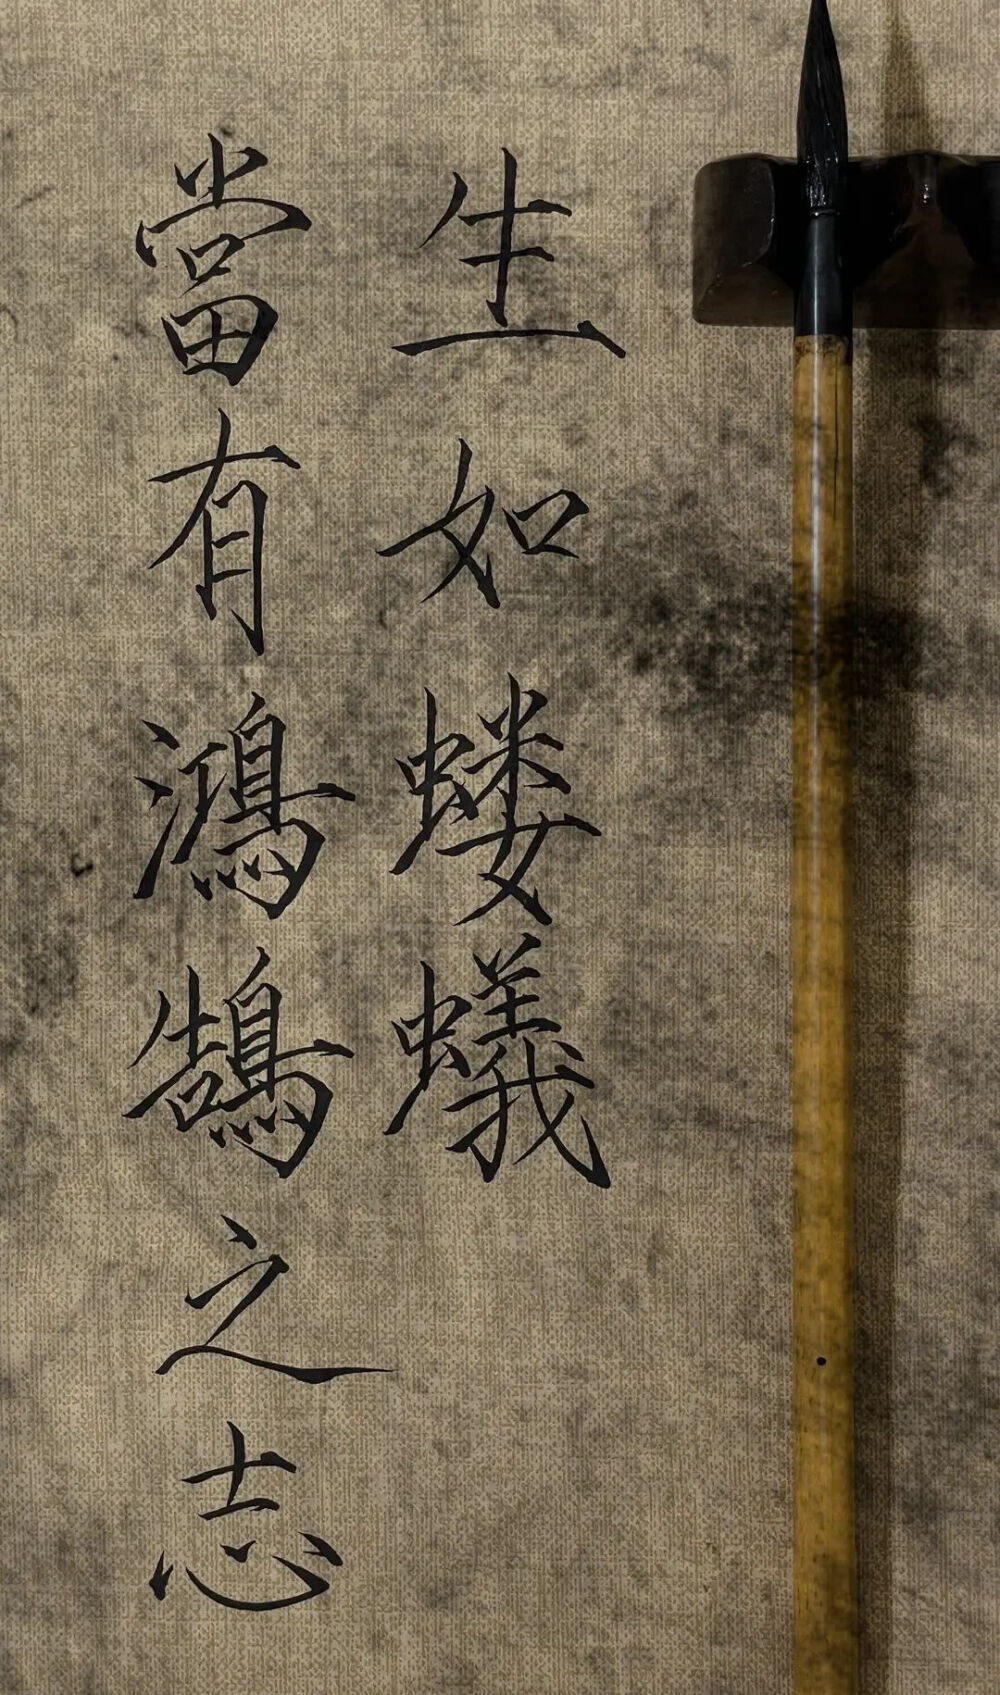 生如蝼蟻
當有鴻鵠之志